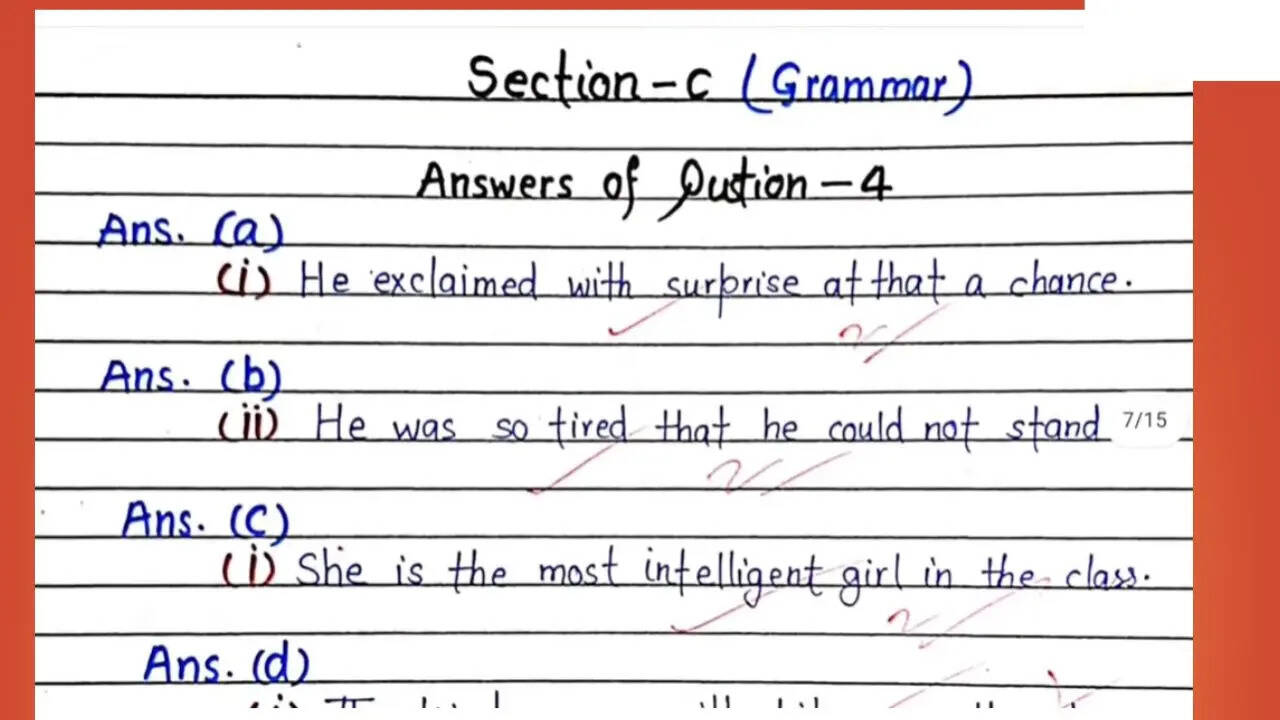 Section-C (Grammar)
Answers of Qustion-4
Ans. (a)
(i) He exclaimed with surprise at that a chance.
Ans. (b)
(ii) He was so tired that he could not stand
7/15
Ans. (c)
(i) She is the most intelligent girl in the class.
Ans. (d)